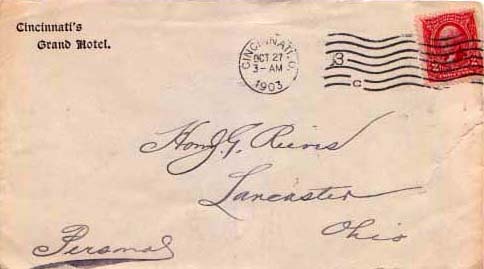 Cincinnati's
Grand Hotel.
CINCINNATI, O.
OCT 27
3-AM
1903
3
C
Hon J. G. Reeves
Lancaster
Ohio
Personal